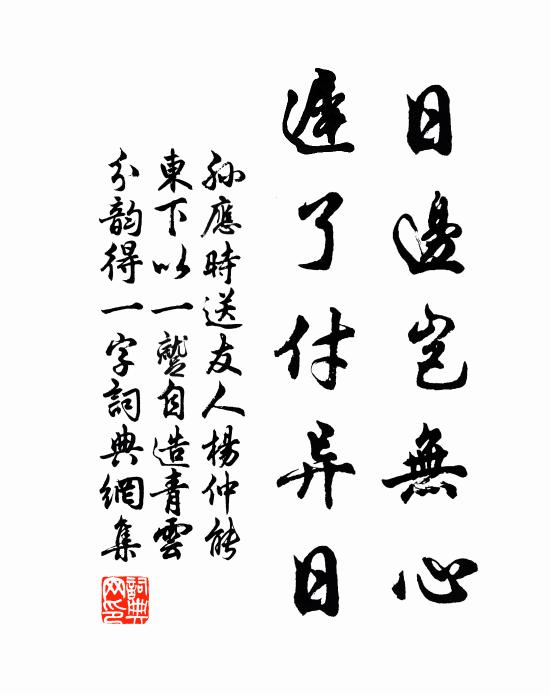 日邊豈無心
遲了付異日
孫應時送友人楊仲能
東下以一鶚自造青雲
分韵得一字詞典網集
詞典網印